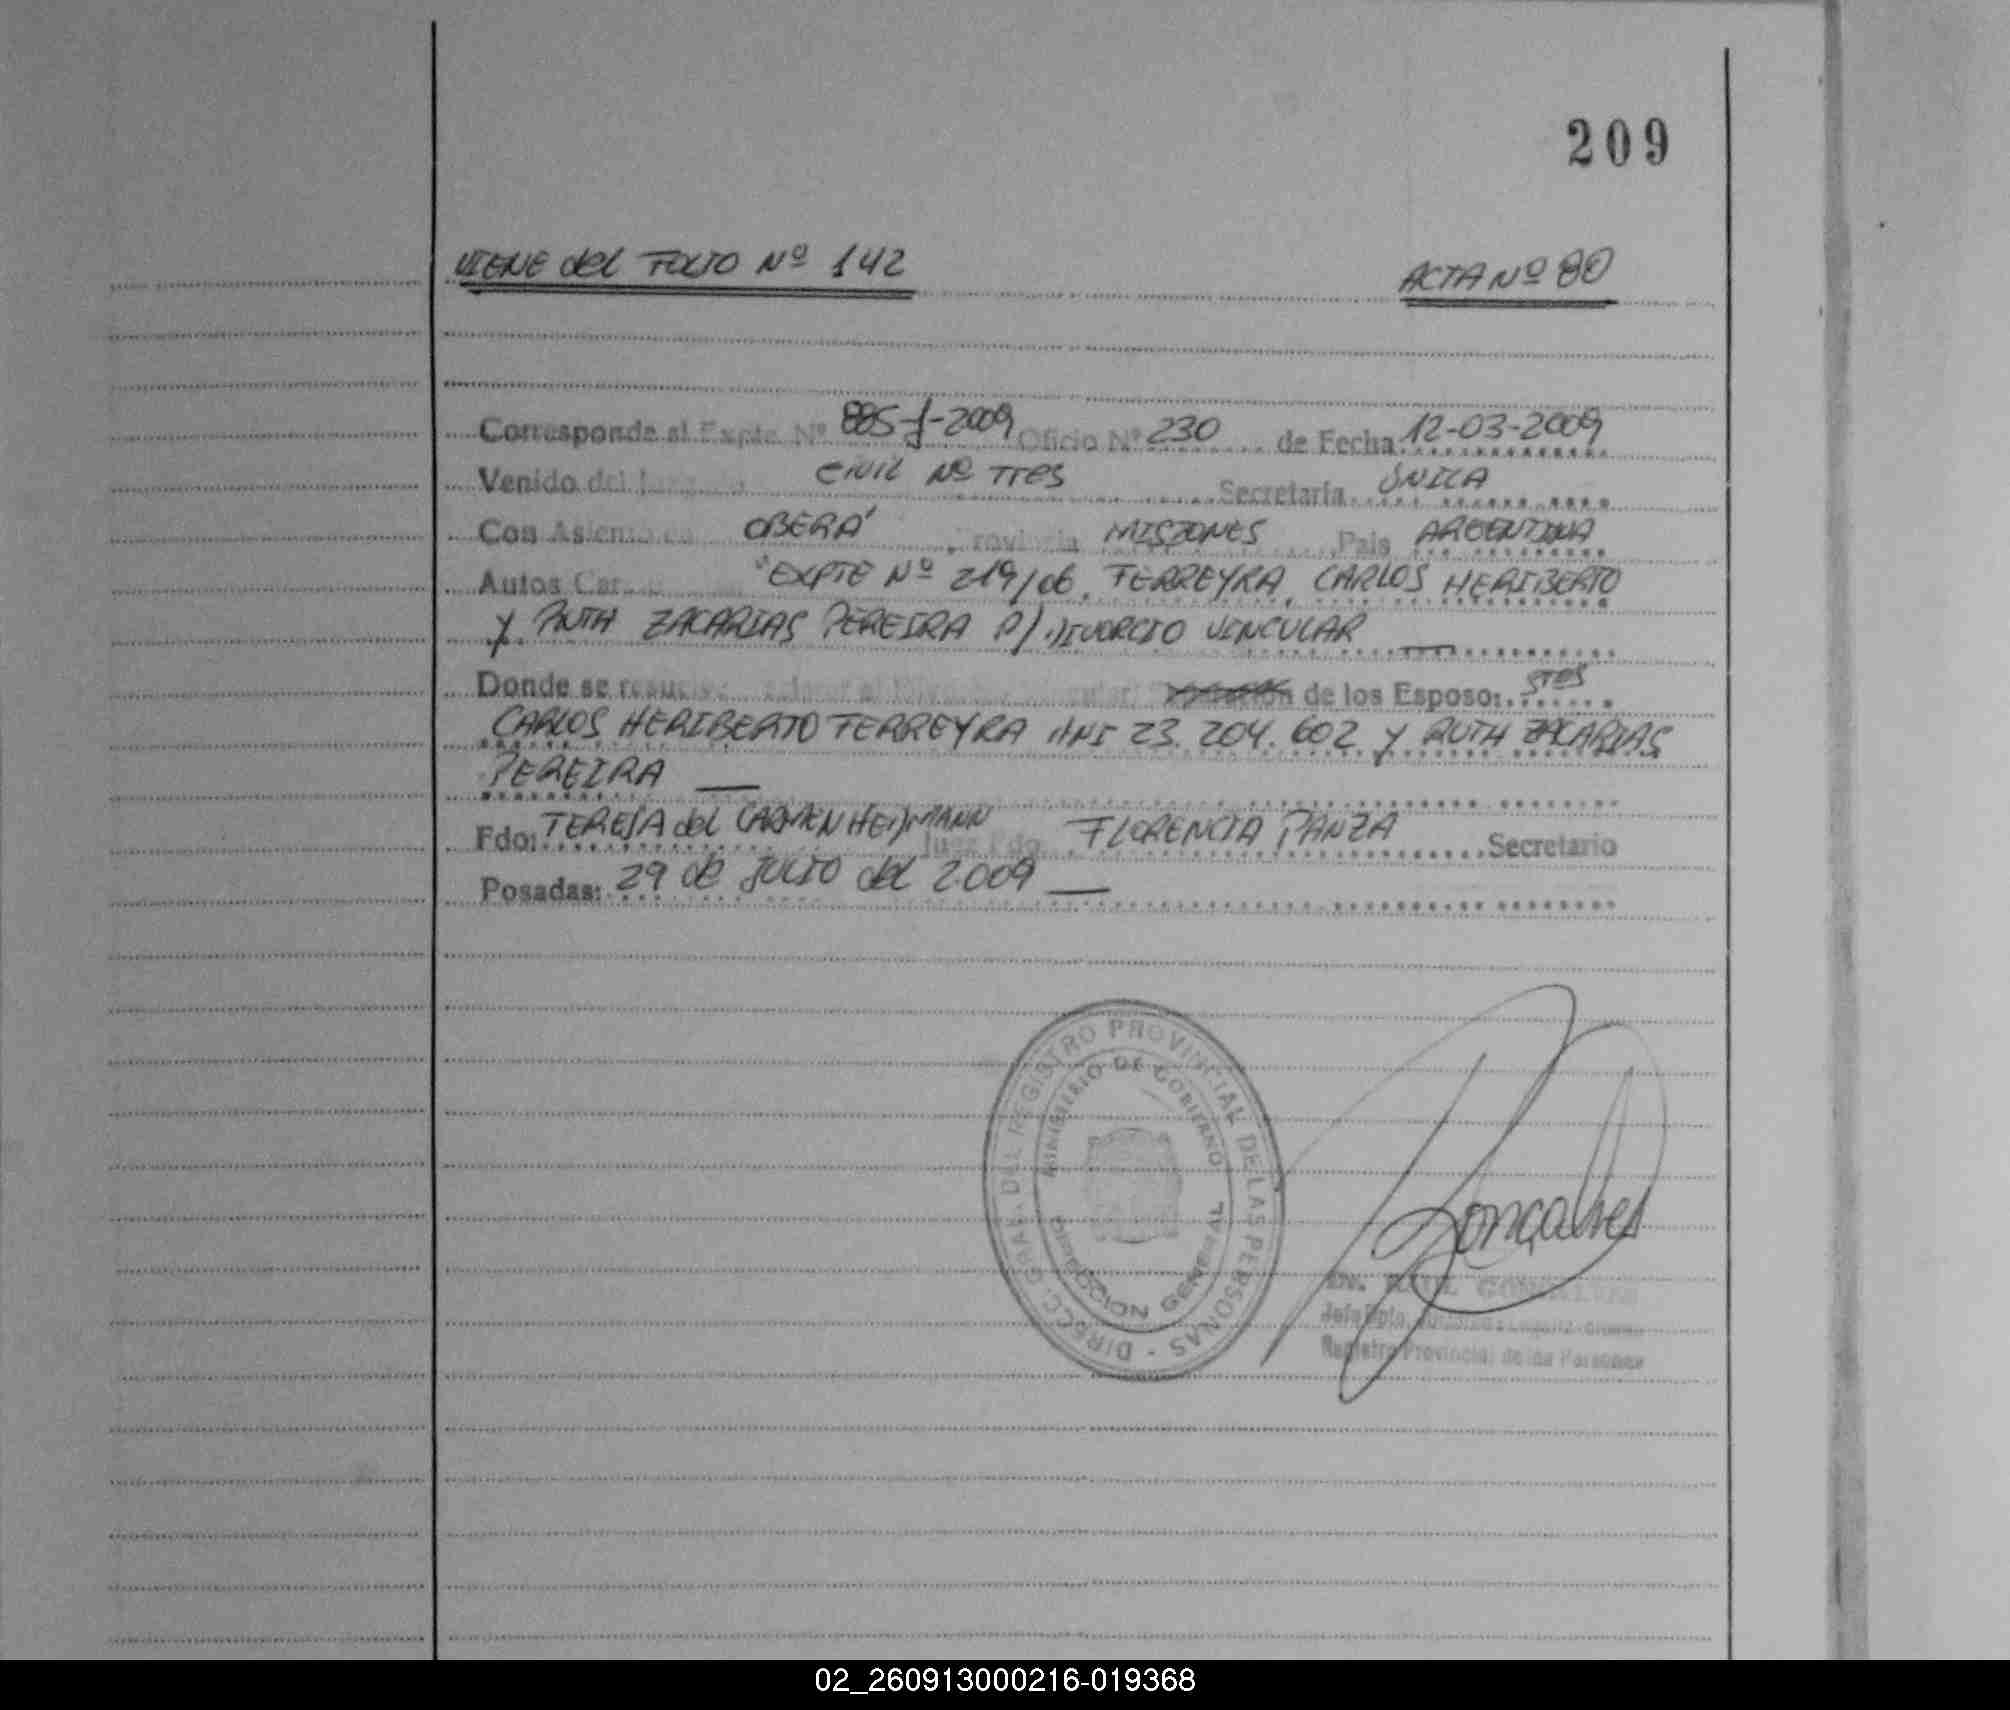 209
VIENE del FOLIO Nº 142 ACTA Nº 80
Corresponde al Expte. Nº 885-f-2009 Oficio Nº 230 de Fecha 12-03-2009
Venido del Juzgado CIVIL Nº Tres Secretaría ÚNICA
Con Asiento en OBERÁ Provincia MISIONES País ARGENTINA
Autos Car. "EXPTE Nº 219/06. FERREYRA, CARLOS HERIBERTO
y RUTH ZACARIAS PEREIRA P/ DIVORCIO VINCULAR
Donde se resuelve: de los Esposo: Stes
CARLOS HERIBERTO FERREYRA DNI 23.204.602 y RUTH ZACARIAS
PEREIRA
Fdo: TERESA del CARMEN HEDMANN Juez Fdo. FLORENCIA PANZA Secretario
Posadas: 29 de JULIO del 2009
DIRECC. GRAL. DEL REGISTRO PROVINCIAL DE LAS PERSONAS
MINISTERIO DE GOBIERNO
DIRECCION GENERAL
Gonçalves
Dr. GONCALVES
Jefe Dpto.
Registro Provincial de las Personas
02_260913000216-019368